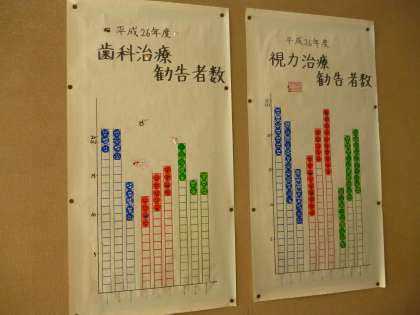 平成26年度
歯科治療
勧告者数
平成26年度
視力治療
勧告者数